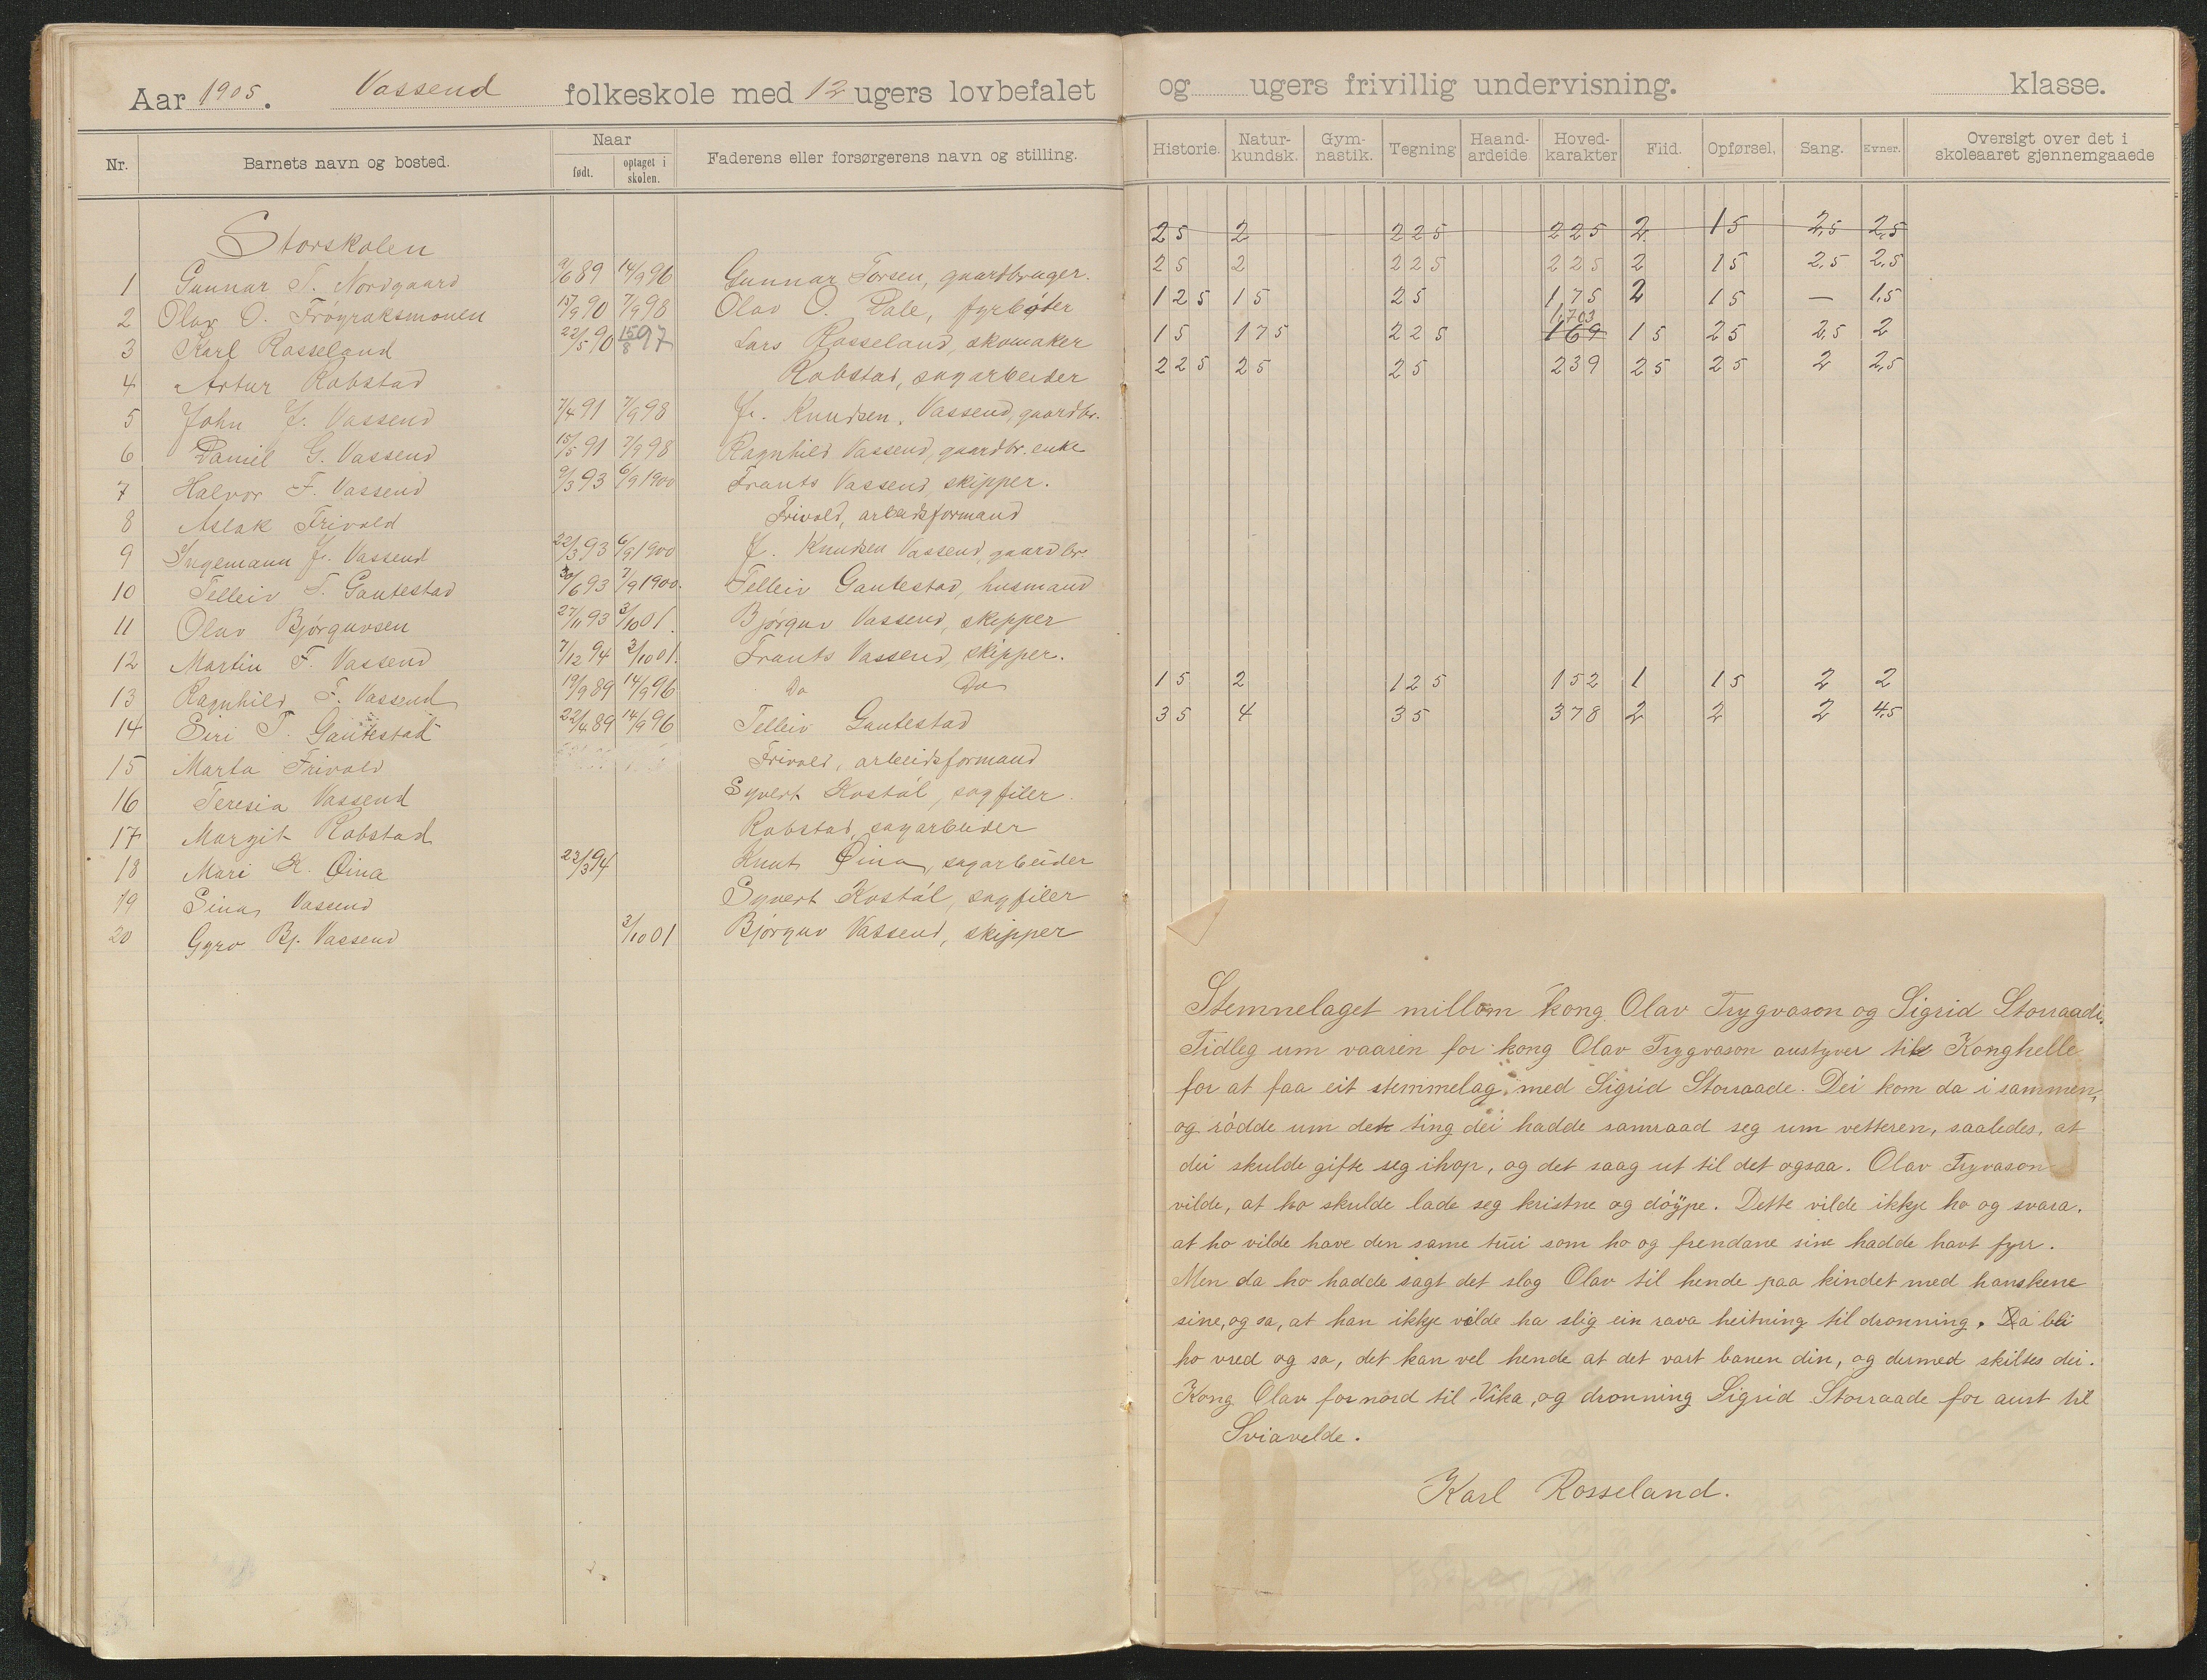 Aar 1905. Vassend folkeskole med 12 ugers lovbefalet og ugers frivillig undervisning. klasse.
Nr. Barnets navn og bosted. Naar født. optaget i skolen. Faderens eller forsørgerens navn og stilling. Historie. Natur-kundsk. Gym-nastik. Tegning Haand-arbeide Hoved-karakter Flid. Opførsel. Sang. Evner. Oversigt over det i skoleaaret gjennemgaaede
Storskolen 25 2 225 225 2 15 2,5 2,5
1 Gunnar T. Nordgaard 9/6 89 14/9 96 Gunnar Torsen, gaardbruger. 25 2 225 225 2 15 2,5 2,5
2 Olav O. Frøyraksmonen 15/9 90 7/9 98 Olav O. Dale, fyrbøter 125 15 25 175 2 15 — 1,5
3 Karl Rosseland 22/5 90 15/8 97 Lars Rosseland, skomaker 15 175 225 1,703 169 15 25 2,5 2
4 Artur Robstad Robstad, sagarbeider 225 25 25 239 25 25 2 2,5
5 John J. Vassend 7/4 91 7/9 98 J. Knudsen Vassend, gaardbr.
6 Daniel G. Vassend 15/5 91 7/9 98 Ragnhild Vassend, gaardbr. enke
7 Halvor F. Vassend 9/3 93 6/9 1900 Frants Vassend, skipper.
8 Aslak Frivold Frivold, arbeidsformand
9 Ingemann J. Vassend 22/3 93 6/9 1900 J. Knudsen Vassend, gaardbr.
10 Telleiv T. Gautestad 30/6 93 7/9 1900. Telleiv Gautestad, husmand
11 Olav Bjørguvsen 27/11 93 3/10 01. Bjørguv Vassend, skipper
12 Martin F. Vassend 7/12 94 3/10 01. Frants Vassend, skipper.
13 Ragnhild F. Vassend 19/9 89 14/9 96 Do Do 15 2 125 152 1 15 2 2
14 Siri T. Gautestad 22/4 89 14/9 96 Telleiv Gautestad 35 4 35 378 2 2 2 4,5
15 Marta Frivold Frivold, arbeidsformand
16 Teresia Vassend Syvert Kostøl, sagfiler.
17 Margit Robstad Robstad, sagarbeider
18 Mari K. Øina 23/3 94 Knut Øina, sagarbeider
19 Sina Vassend Syvert Kostøl, sagfiler
20 Gyro Bj. Vassend 3/10 01 Bjørguv Vassend, skipper
Stemnelaget millom kong Olav Trygvason og Sigrid Storraade.
Tidleg um vaaren for kong Olav Trygvason austyver til Konghelle
for at faa eit stemmelag med Sigrid Storraade. Dei kom da i sammen,
og rødde um det ting dei hadde samraad seg um vetteren, saaledes, at
dei skulde gifte seg ihop, og det saag ut til det ogsaa. Olav Trygvason
vilde, at ho skulde lade seg kristne og døype. Dette vilde ikkje ho og svara.
at ho vilde have den same trui som ho og frendane sine hadde havt fyrr.
Men da ho hadde sagt det slog Olav til hende paa kindet med hanskene
sine, og sa, at han ikkje vilde ha slig ein rava heitning til dronning. Da blei
ho vred og sa, det kan vel hende at det vart banen din, og dermed skiltes dei.
Kong Olav for nord til Vika, og dronning Sigrid Storraade for aust til
Sviavelde.
Karl Rosseland.